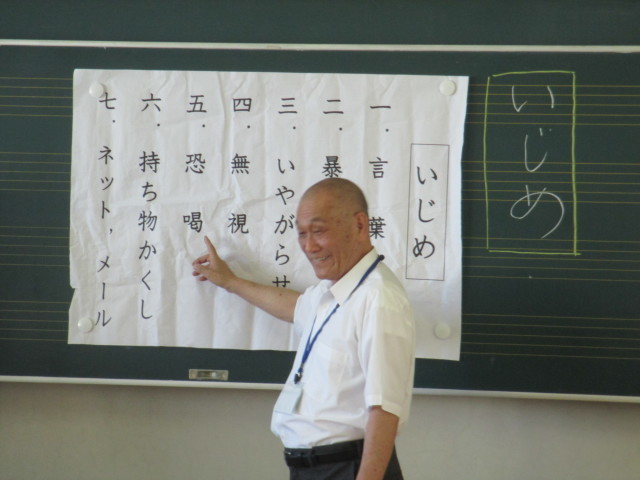 いじめ
いじめ
一．言葉
二．暴
三．いやがらせ
四．無視
五．恐喝
六．持ち物かくし
七．ネット，メール